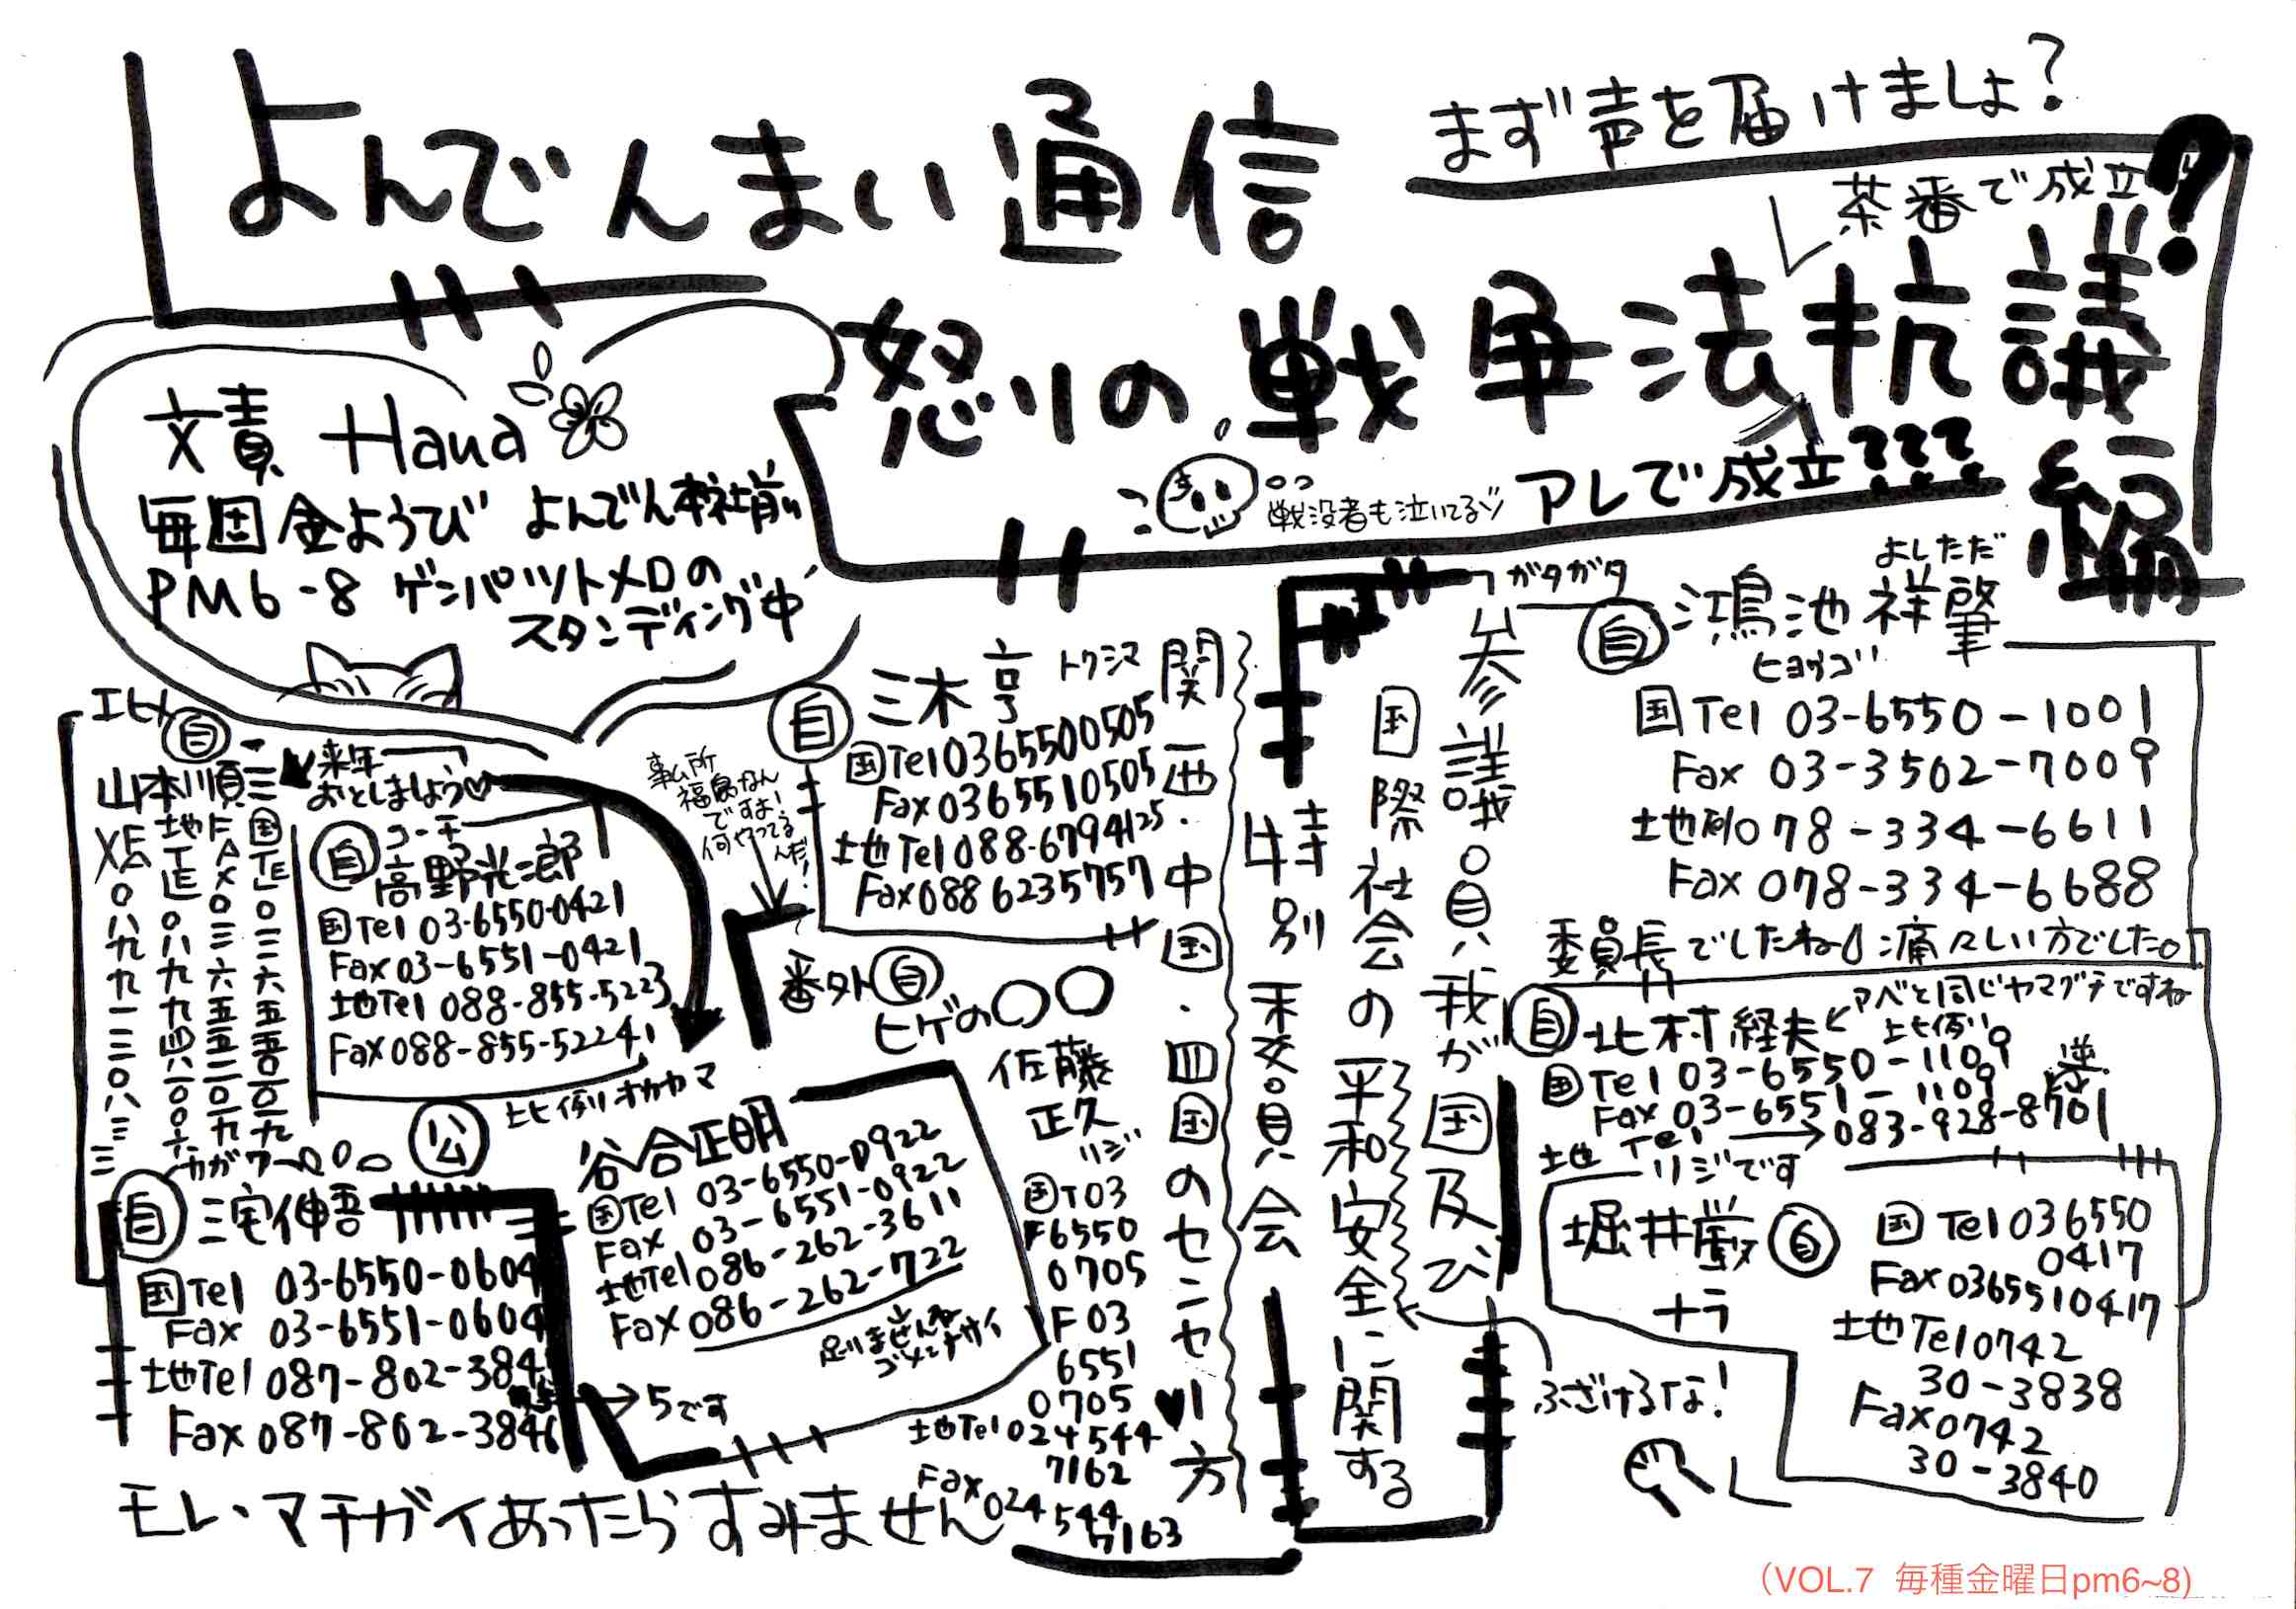 よんでんまい通信
まず声を届けましょ?
茶番で成立?
怒りの戦争法抗議編
アレで成立????
戦没者も泣いてるゾ
文責 Hana
毎週金ようび よんでん本社前
PM6-8 ゲンパツトメロの
スタンディング中
ガタガタ
参議員 我が国及び
国際社会の平和安全に関する
特別委員会
ふざけるな!
関西・中国・四国のセンセ
♥リ方
自 鴻池祥肇
よしただ
ヒョウゴ
国Tel 03-6550-1001
Fax 03-3502-7009
地 078-334-6611
Fax 078-334-6688
委員長でしたね 痛々しい方でした。
自 北村経夫
アベと同じヤマグチですね
比例
国Tel 03-6550-1109
Fax 03-6551-1109
逆
地 Tel → 083-928-8701
リジです
堀井巌 自
ナラ
国Tel 036550
0417
Fax 0365510417
地Tel 0742
30-3838
Fax 0742
30-3840
自 三木亨 トクシマ
国Tel 0365500505
Fax 0365510505
地Tel 088-6794125
Fax 088 6235757
番外 自
ヒゲの〇〇
佐藤
正久
リジ
国T03
6550
0705
F 03
6551
0705
地Tel 024544
7162
Fax 024
544
7163
事ム所
福島なん
ですよ!
何やってる
んだ!
エヒメ
自
山本順三
国TEL〇三六五五〇一〇一九
FAX〇三六五五一一〇一九
地TEL〇八九九四六一〇〇六
FAX〇八九九一三二〇八三三
来年
おとしましょう♡
自 コーチ
高野光二郎
国Tel 03-6550-0421
Fax 03-6551-0421
地Tel 088-855-5223
Fax 088-855-5224
公 比例オカヤマ
谷合正明
国Tel 03-6550-0922
Fax 03-6551-0922
地Tel 086-262-3611
Fax 086-262-722
足りませんね
ゴメンナサイ
カガワ
自 三宅伸吾
国Tel 03-6550-0604
Fax 03-6551-0604
地Tel 087-802-384
→5です
Fax 087-802-3846
モレ、マチガイあったらすみません
（VOL.7 毎種金曜日pm6~8)